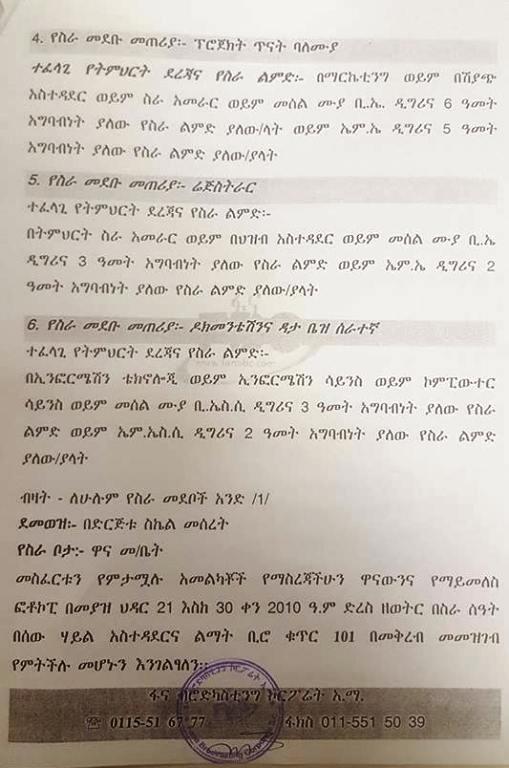 4. የስራ መደቡ መጠሪያ፡- ፕሮጀክት ጥናት ባለሙያ
ተፈላጊ የትምህርት ደረጃና የስራ ልምድ፡- በማርኬቲንግ ወይም በሽያጭ
አስተዳደር ወይም ስራ አመራር ወይም መሰል ሙያ ቢ.ኤ. ዲግሪና 6 ዓመት
አግባብነት ያለው የስራ ልምድ ያለው/ላት ወይም ኤም.ኤ ዲግሪና 5 ዓመት
አግባብነት ያለው የስራ ልምድ ያለው/ያላት
5. የስራ መደቡ መጠሪያ፡- ሬጅስትራር
ተፈላጊ የትምህርት ደረጃና የስራ ልምድ፡-
በትምህርት ስራ አመራር ወይም በህዝብ አስተዳደር ወይም መሰል ሙያ ቢ.ኤ
ዲግሪና 3 ዓመት አግባብነት ያለው የስራ ልምድ ወይም ኤም.ኤ ዲግሪና 2
ዓመት አግባብነት ያለው የስራ ልምድ ያለው/ያላት
6. የስራ መደቡ መጠሪያ፡- ዶክመንቴሽንና ዳታ ቤዝ ሰራተኛ
ተፈላጊ የትምህርት ደረጃና የስራ ልምድ፡-
በኢንፎርሜሽን ቴክኖሎጂ ወይም ኢንፎርሜሽን ሳይንስ ወይም ኮምፒውተር
ሳይንስ ወይም መሰል ሙያ ቢ.ኤስ.ሲ ዲግሪና 3 ዓመት አግባብነት ያለው የስራ
ልምድ ወይም ኤም.ኤስ.ሲ ዲግሪና 2 ዓመት አግባብነት ያለው የስራ ልምድ
ያለው/ያላት
ብዛት - ለሁሉም የስራ መደቦች አንድ /1/
ደመወዝ፡- በድርጅቱ ስኬል መሰረት
የስራ ቦታ፡- ዋና መ/ቤት
መስፈርቱን የምታሟሉ አመልካቾች የማስረጃችሁን ዋናውንና የማይመለስ
ፎቶኮፒ በመያዝ ህዳር 21 እስከ 30 ቀን 2010 ዓ.ም ድረስ ዘወትር በስራ ሰዓት
በሰው ሃይል አስተዳደርና ልማት ቢሮ ቁጥር 101 በመቅረብ መመዝገብ
የምትችሉ መሆኑን እንገልፃለን፡፡
ፋና ብሮድካስቲንግ ኮርፖሬት አ.ማ.
☎ 0115-51 67 77 ፋክስ 011-551 50 39